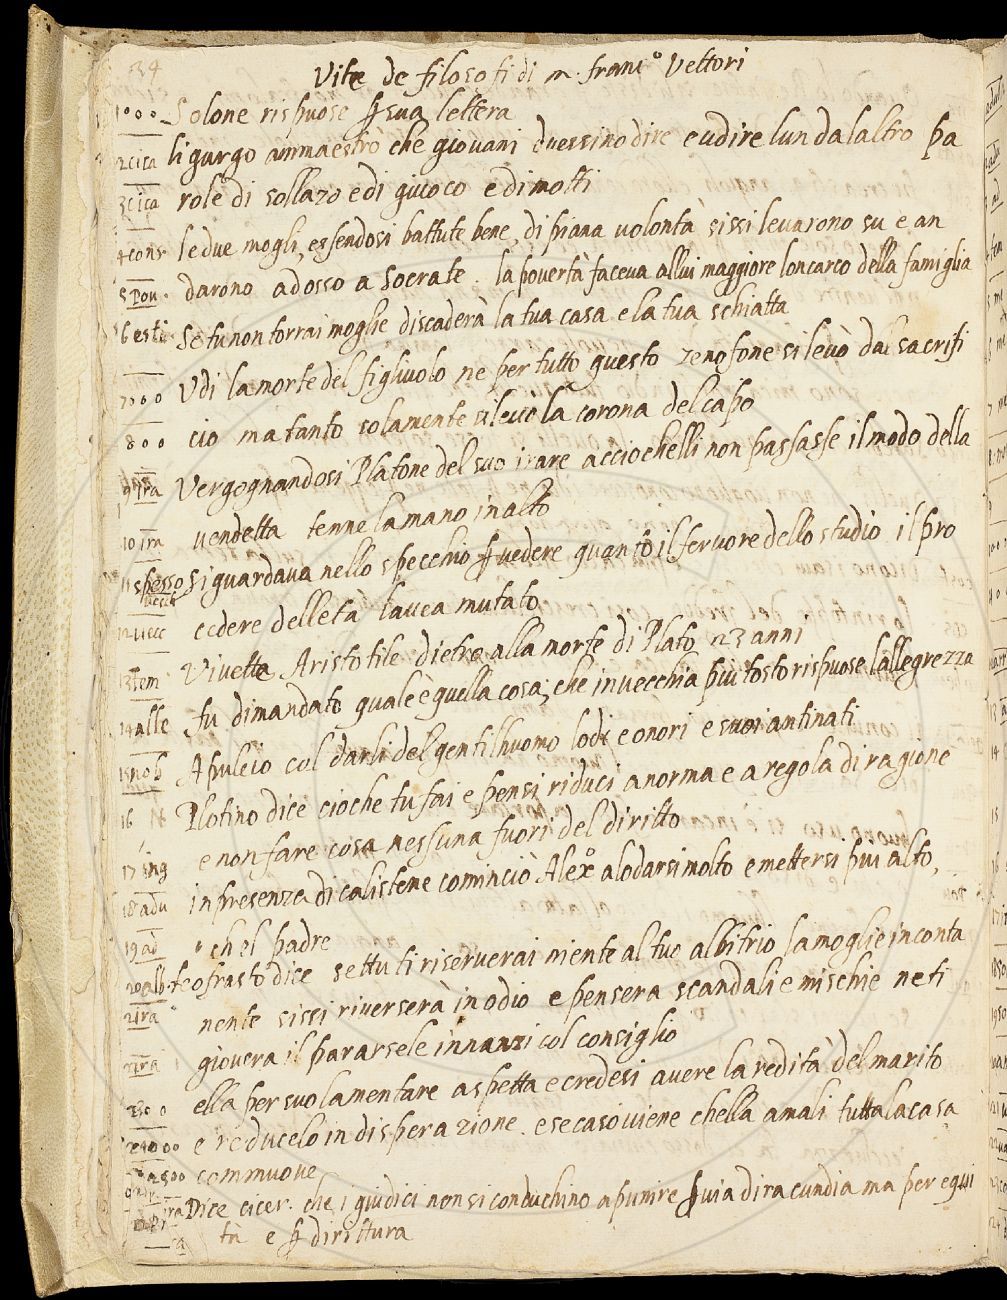 34
Vite de filosofi di m. franc.º Vettori
1000 Solone rispuose p sua lettera
2 cica ligurgo ammaestrò che giovani dvessino dire e udire lun dalaltro pa
3 cica role di sollazo e di givoco e di motti
4 cons. le due mogli, essendosi battute bene, di piana volontà sissi levarono su e an
5 Pou. darono adosso a Socrate. la povertà faceva allui maggiore loncarco della famiglia
6 esti Se tu non torrai moglie discaderà la tua casa e la tua schiatta
7000 Udi la morte del figlivolo ne per tutto questo zenofone si levò dal sacrifi
800 cio ma tanto solamente si levo la corona del capo
9 ira Vergognandosi Platone del suo irare acciochelli non passasse il modo della
10 ira vendetta tenne la mano in alto
11 spesso specch si guardava nello specchio p vedere quanto il fervore dello studio il pro
12 vecc cedere delleta lavea mutato
13 tem Vivette Aristotile dietro alla morte di Plato 23 anni
14 alle fu dimandato quale è quella cosa, che invecchia piu tosto rispuose lallegrezza
15 nob Apuleio cul darli del gentilhuomo lodi e onori e suoi antinati
16 Plotino dice cioche tu fai e pensi riduci a norma e a regola di ragione
17 ing e non fare cosa nessuna fuori del diritto
18 adu in presenza di calistene cominciò Alexº a lodarsi molto e mettersi piu alto,
19 ad ch el padre
20 alb. teofrasto dice se ttu ti riserverai niente al tuo albitrio la moglie inconta
21 ira nente sissi riverserà in odio e pensera scandali e mischie ne ti
22 ira giovera il pararsele innanzi col consiglio
2300 ella per suo lamentare aspetta e credesi avere laredità del marito
24000 e reducelo in disperazione. e se caso viene chella amali tutta la casa
2500 commuove
ira Dice cicer. che i giudici non si conduchino a punire p via diracundia ma per equi
tà e p dirittura